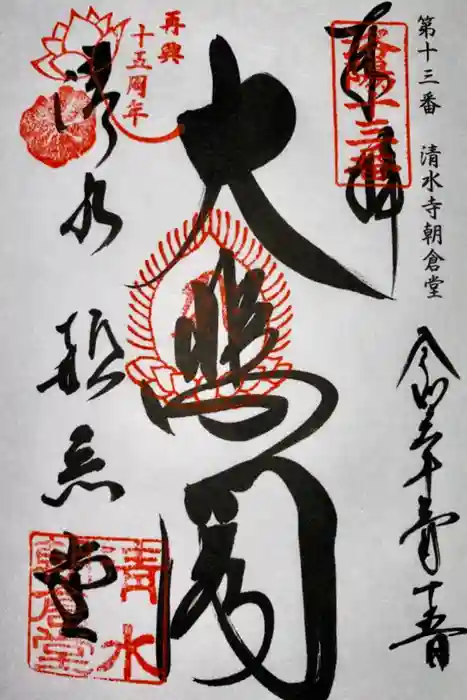 第十三番　清水寺朝倉堂
奉拝
洛陽十三番
令和
十五日
再興
十五周年
大悲閣
清水
朝倉堂
清水
朝倉堂